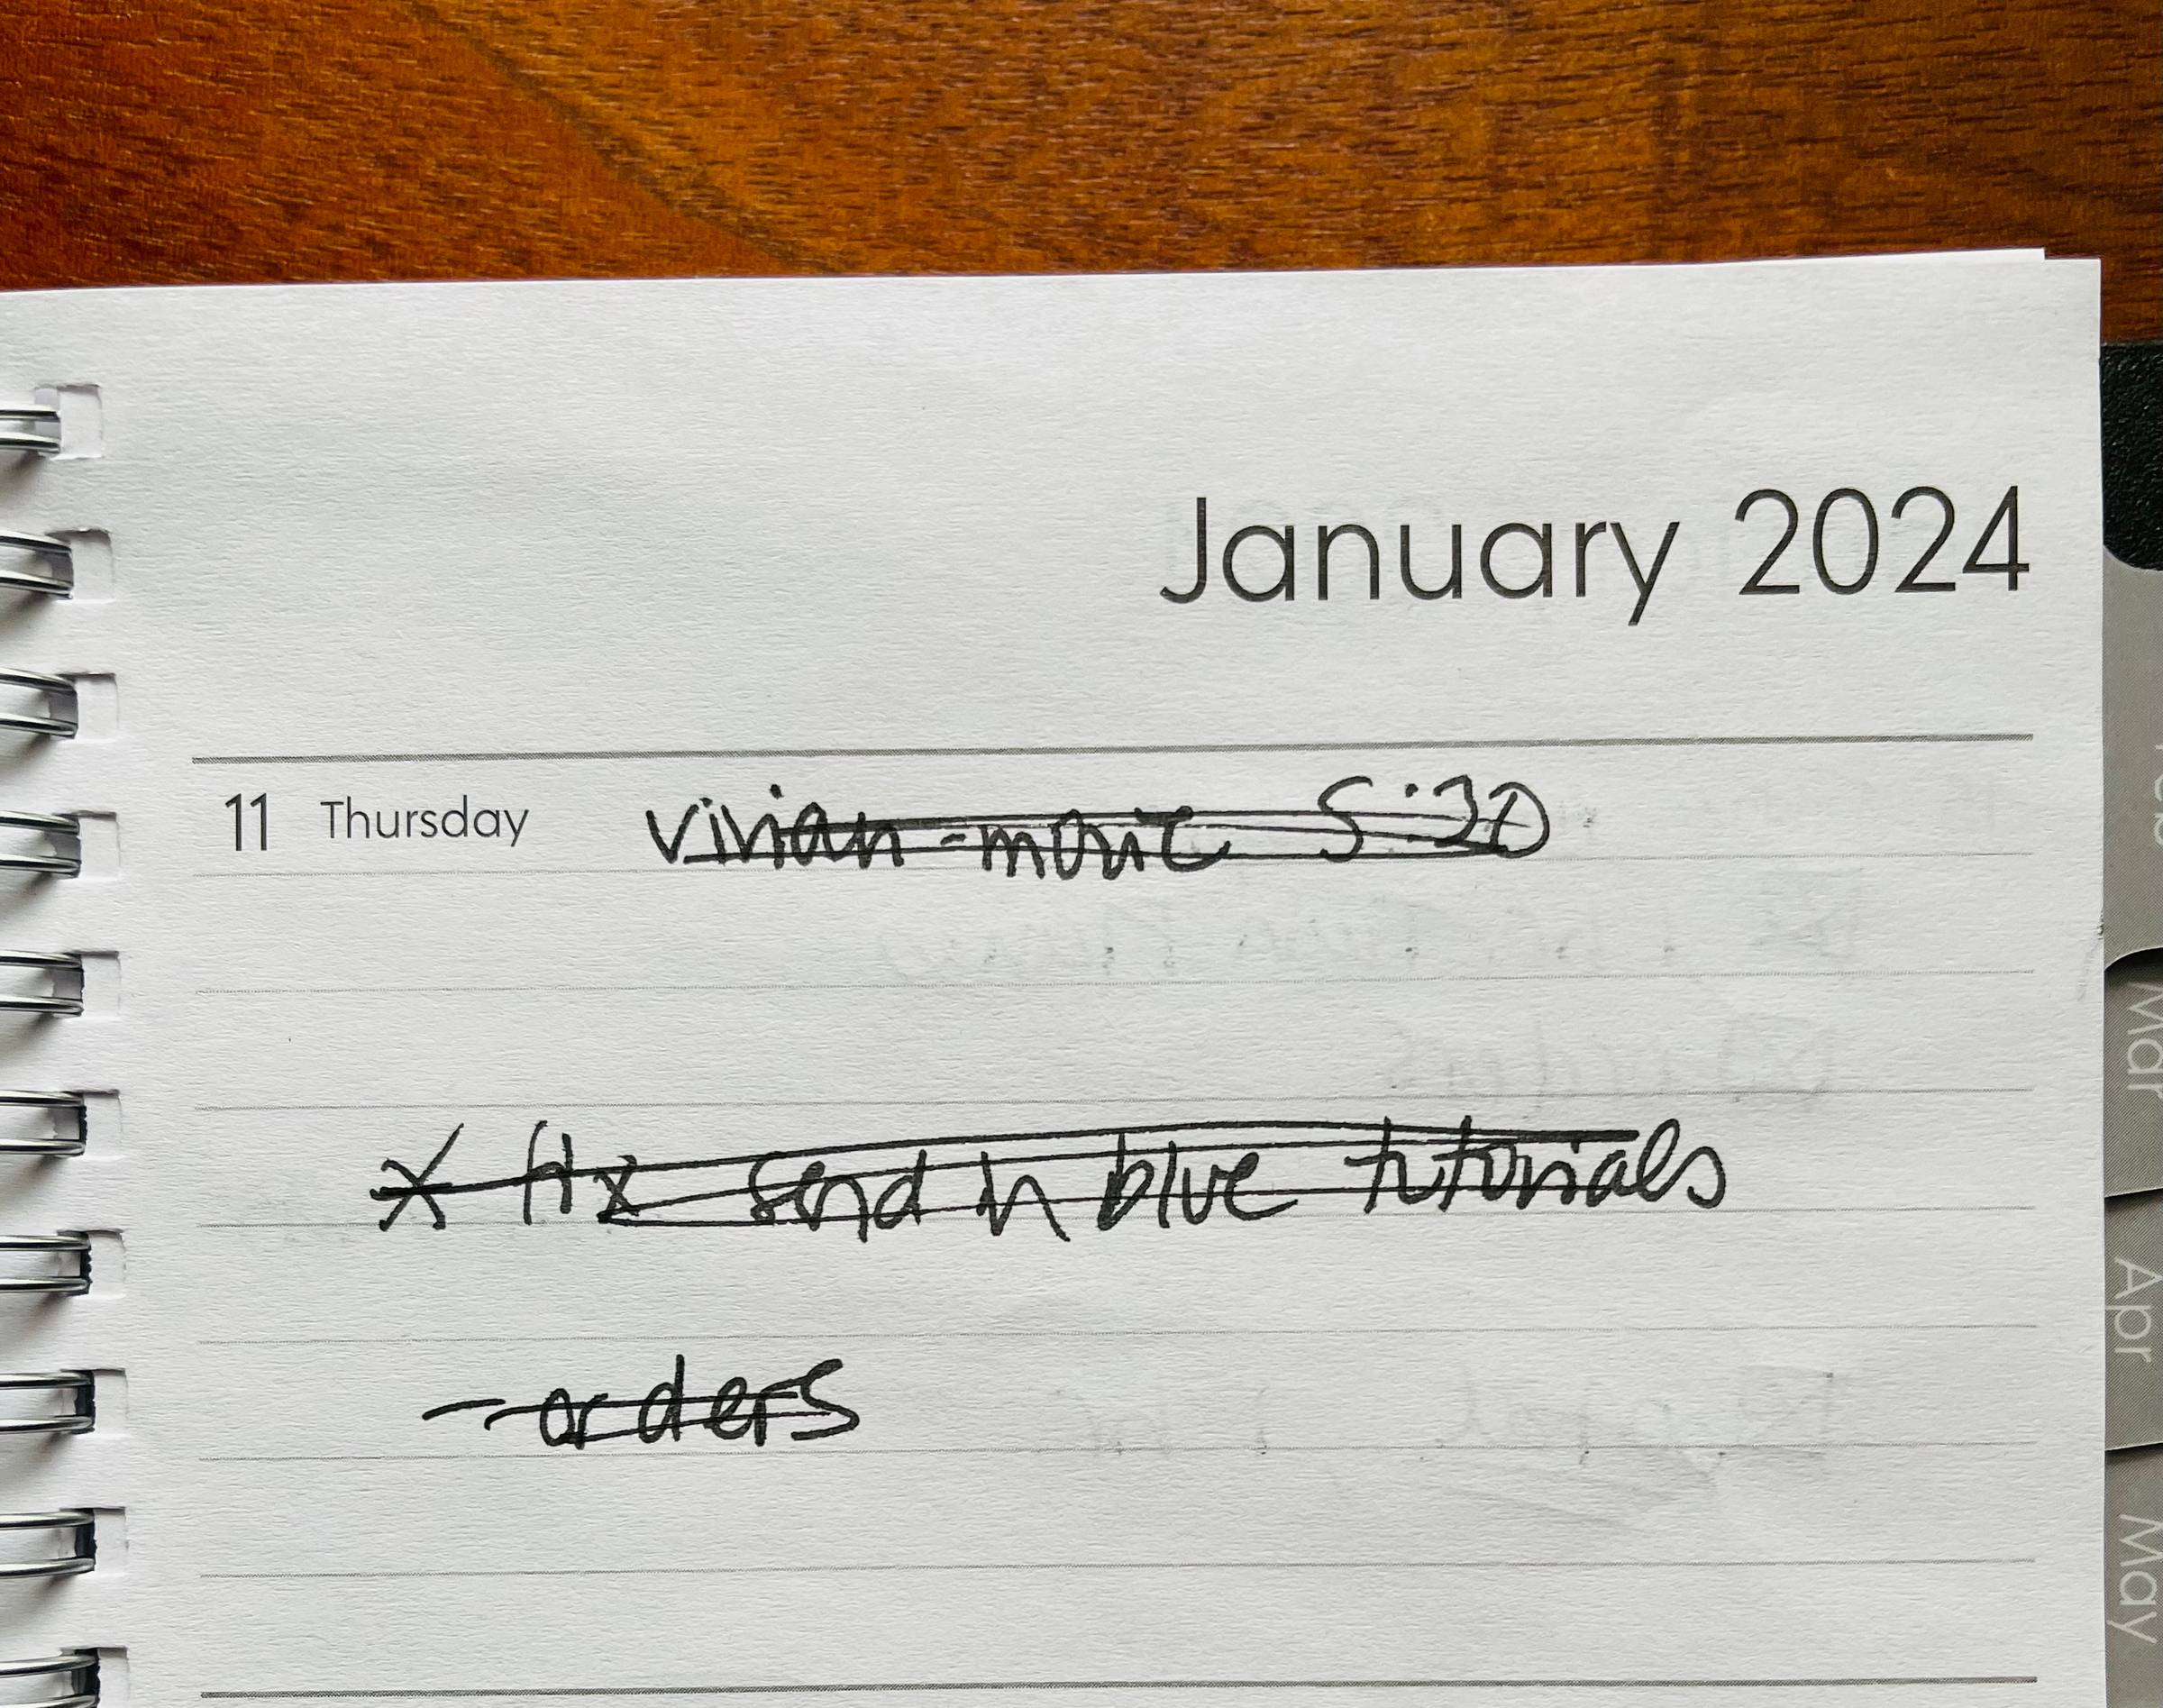 January 2024
11 Thursday vivian - movie 5:30
* fix send in blue tutorials
- orders
Mar
Apr
May